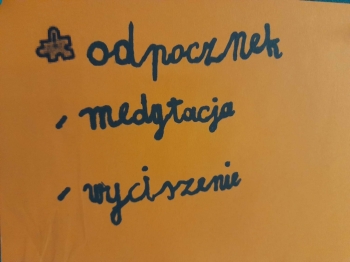 odpocznek
- medytacja
- wyciszenie